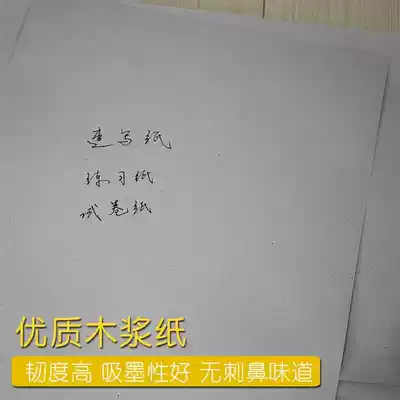 速写纸
练习纸
试卷纸
优质木浆纸
韧度高 吸墨性好 无刺鼻味道